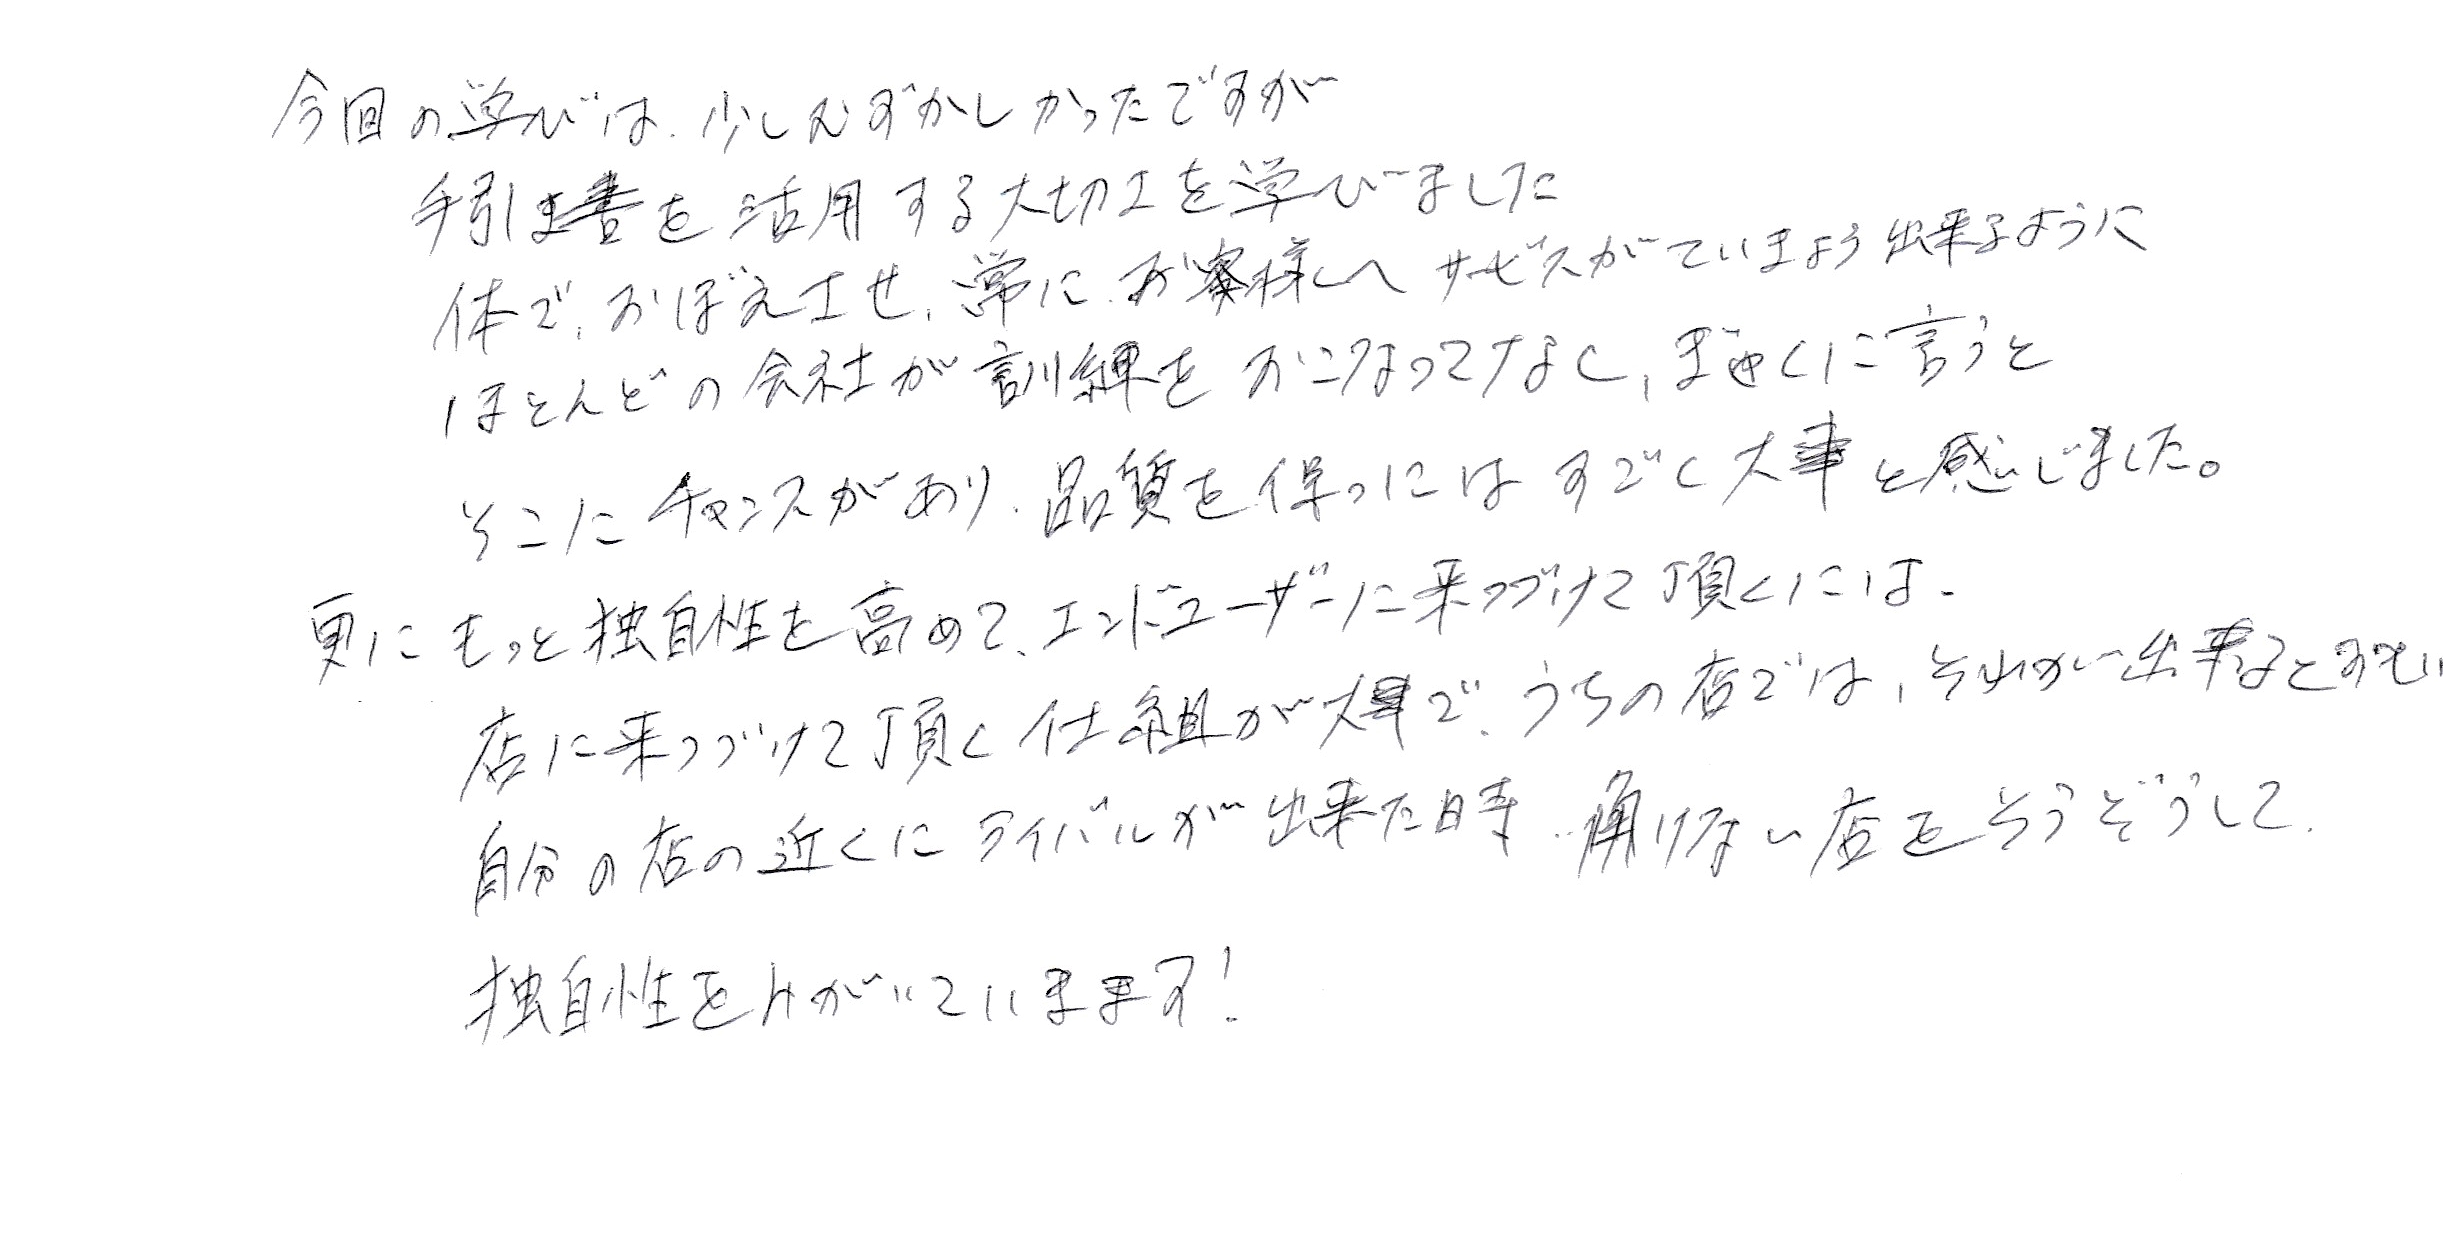 今回の学びは、少しむずかしかったですが
手引き書を活用する大切さを学びました
体で、おぼえさせ、常に、お客様へサービスがていきよう出来るように
ほとんどの会社が訓練をおこなってなく、ぎゃくに言うと
そこにチャンスがあり、品質を保つにはすごく大事と感じました。
更にもっと独自性を高めて、エンドユーザーに来つづけて頂くには、
店に来つづけて頂く仕組が大事で、うちの店では、それが出来る
自分の店の近くにライバルが出来た時、負けない店をそうぞうして、
独自性をみがいていきます!